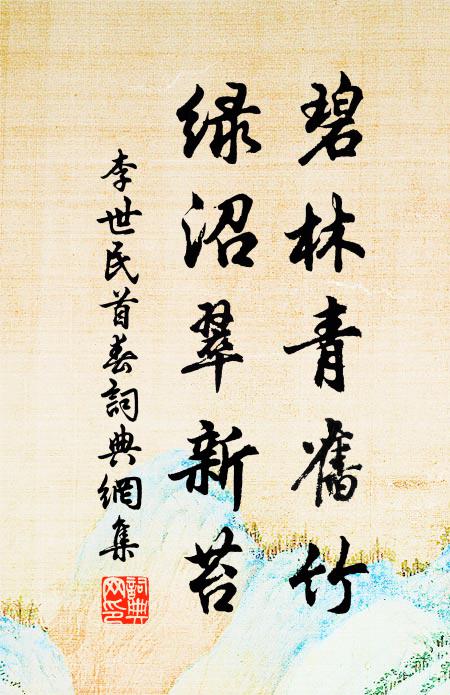 碧林青舊竹
綠沼翠新苔
李世民首春詞典網集
詞典